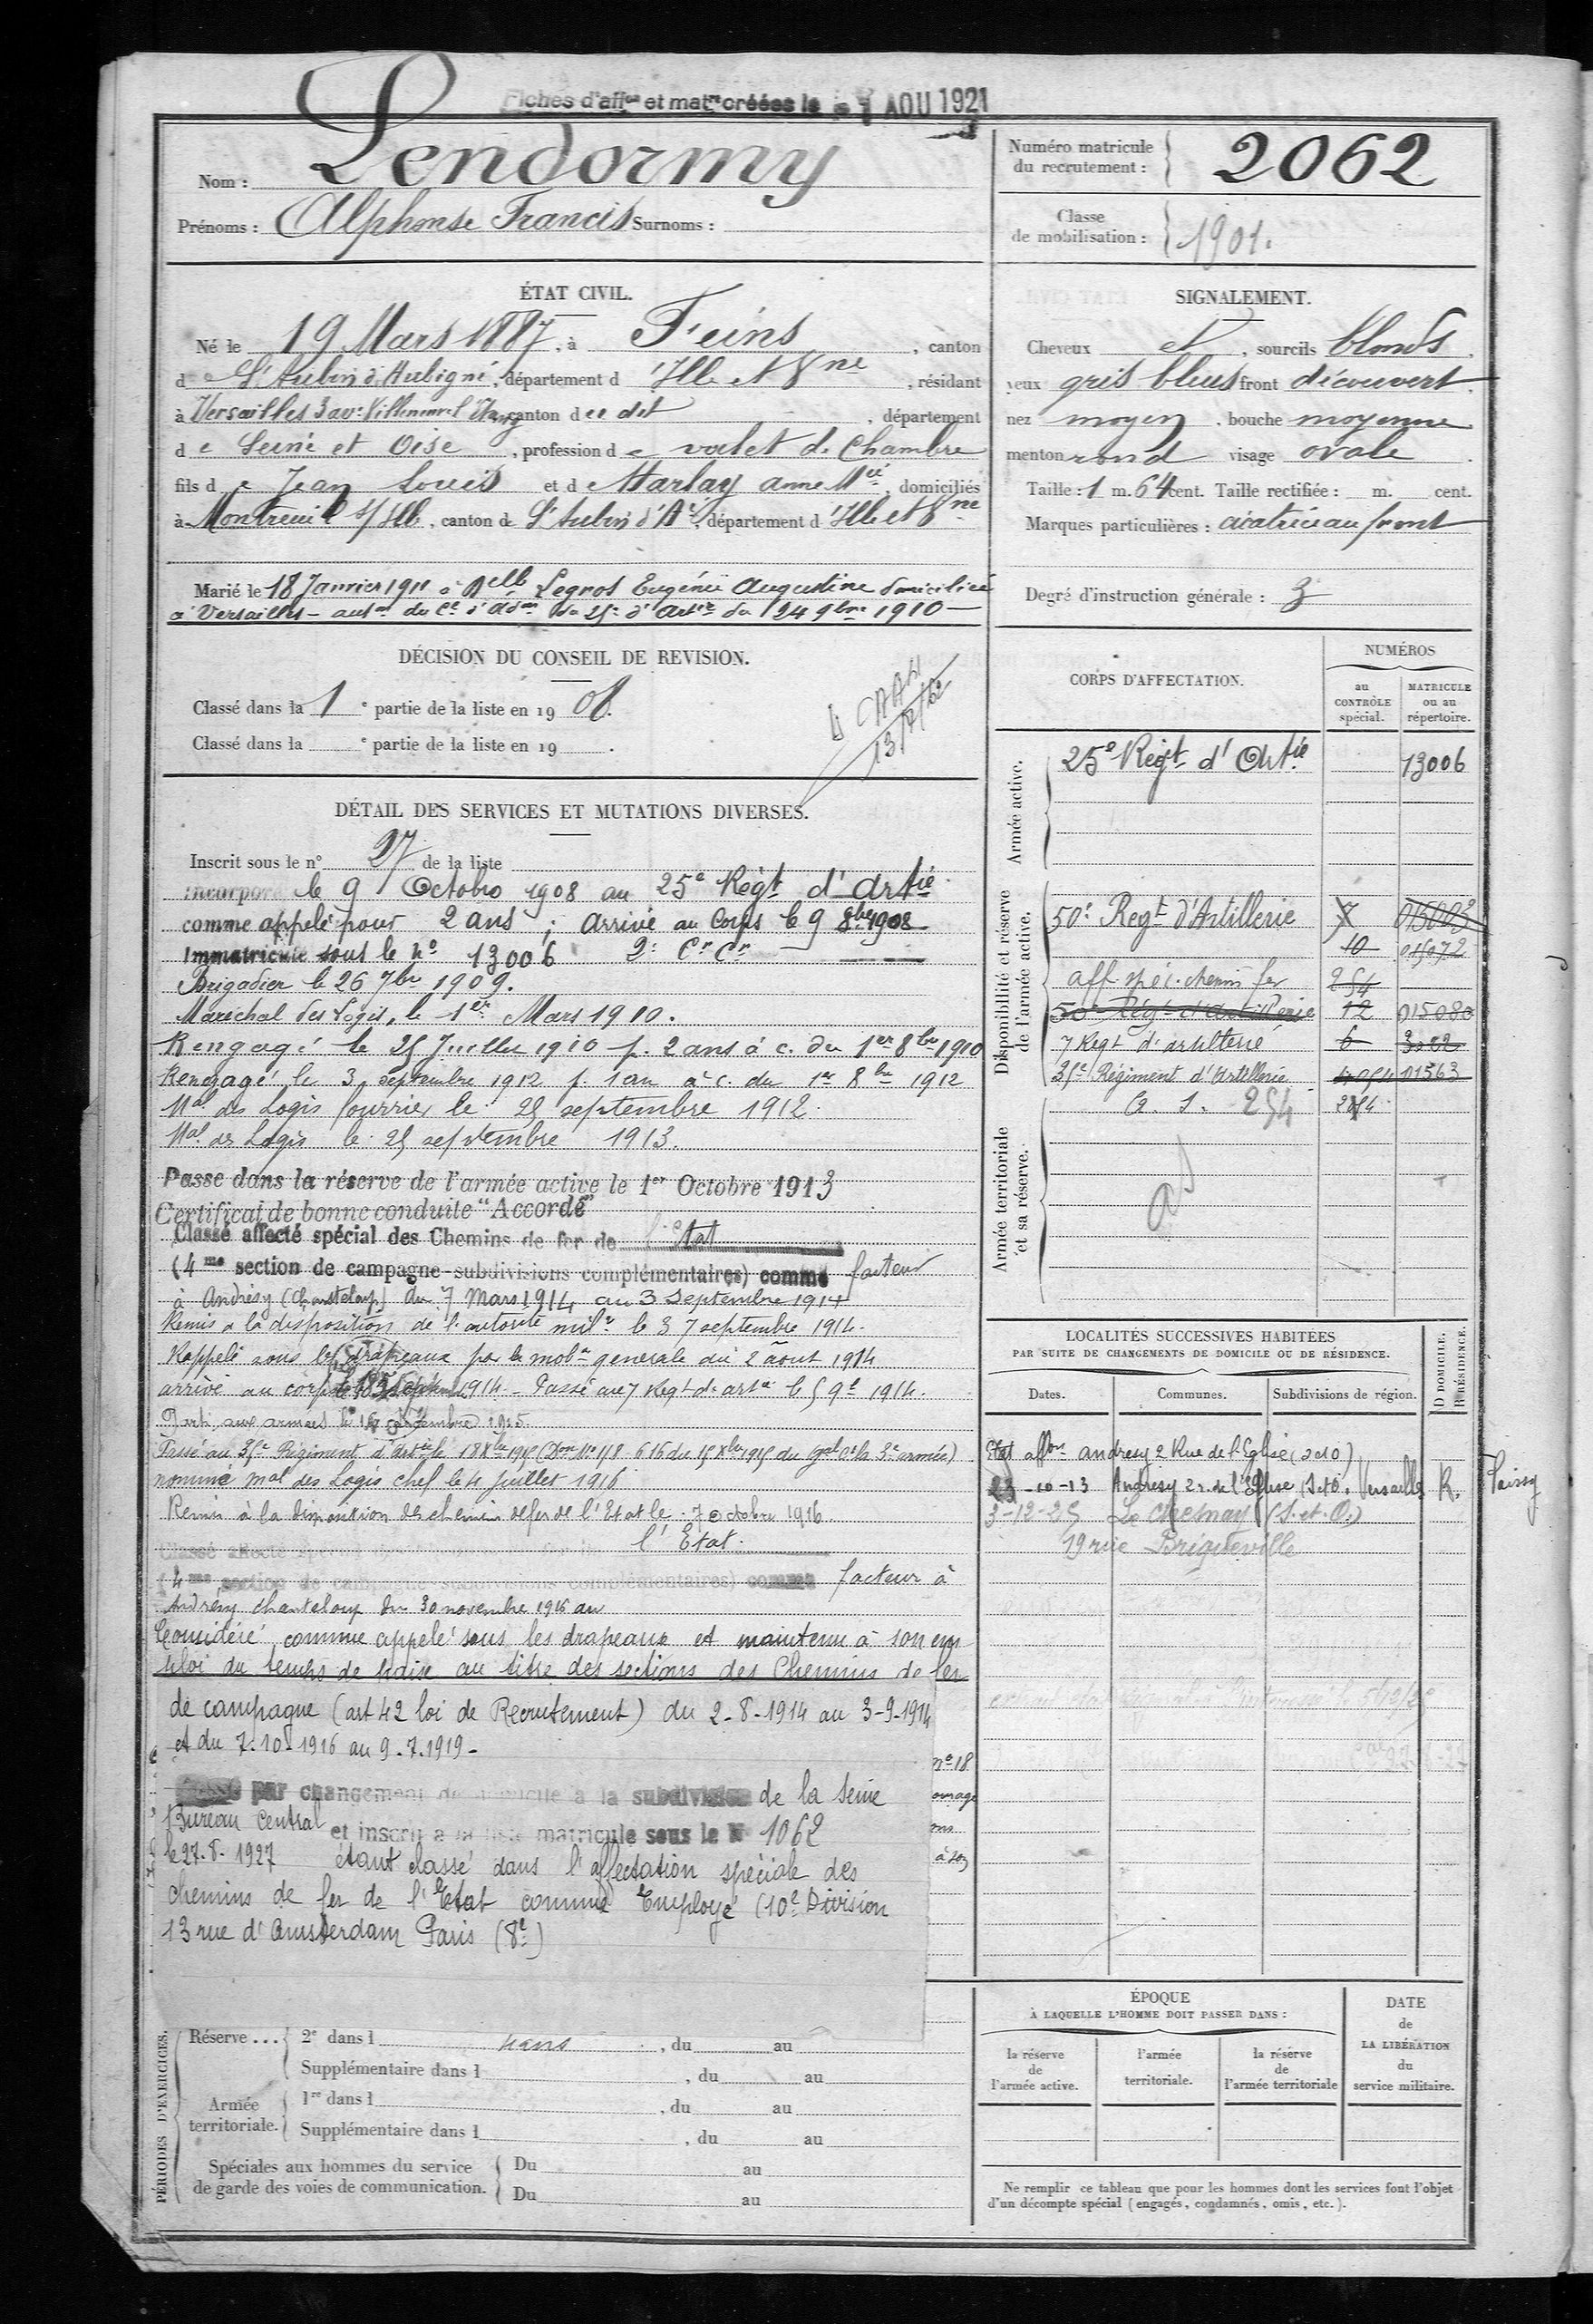 Fiches d'affon et matre créées le - 1 AOU 1921
Nom : Lendormy
Prénoms : Alphonse Francis Surnoms :
Numéro matricule
du recrutement : 2062
Classe
de mobilisation : 1901.
ÉTAT CIVIL.
Né le 19 Mars 1887, à Feins, canton
de St Aubin d'Aubigné, département d'Ille et Vne, résidant
à Versailles 3 av. Villeneuve l'Etang canton de dit, département
de Seine et Oise, profession de valet de Chambre
fils de Jean Louis et de Marlay anne Mie, domiciliés
à Montreuil s/ Ille, canton de St Aubin d'Ané, département d'Ille et Vne
Marié le 18 Janvier 1911 à Delle Legros Eugénie Augustine domiciliée
à Versailles - auton du Cl d'Adon du 25e d'Artie du 24 9bre 1910
SIGNALEMENT.
Cheveux et, sourcils blonds
yeux gris bleus front découvert
nez moyen, bouche moyenne
menton rond visage ovale
Taille : 1 m. 64 cent. Taille rectifiée : m. cent.
Marques particulières : cicatrice au front
Degré d'instruction générale : 3
DÉCISION DU CONSEIL DE REVISION.
Classé dans la 1e partie de la liste en 1908.
Classé dans la e partie de la liste en 19 .
DÉTAIL DES SERVICES ET MUTATIONS DIVERSES.
Inscrit sous le n° 27 de la liste
Incorporé le 9 Octobre 1908 au 25e Régt d'Artie
comme appelé pour 2 ans ; Arrivé au Corps le 9 8bre 1908
Immatriculé sous le No 13006 2e Cr Cr
Brigadier le 26 7bre 1909.
Maréchal des Logis, le 1er Mars 1910.
Rengagé le 25 Juillet 1910 p. 2 ans à c. du 1er 8bre 1910
Rengagé le 3 septembre 1912 p. 1 an à c. du 1er 8bre 1912
Mal des Logis fourrier le 25 septembre 1912.
Mal des Logis le 25 septembre 1913.
Passé dans la réserve de l'armée active le 1er Octobre 1913
Certificat de bonne conduite "Accordé"
Classé affecté spécial des Chemins de fer de l'Etat
(4me section de campagne subdivisions complémentaires) comme facteur
à Andrésy (Chanteloup) du 7 Mars 1914 au 3 Septembre 1914
Remis à la disposition de l'autorité milre le 3 7 septembre 1914.
Rappelé sous les drapeaux par la mobon generale du 2 août 1914
arrivé au corps 1914 - Passé au 7 Régt d'artie le 5 9e 1914.
Parti aux armées le 16 1915.
Passé au 35e Régiment d'artie le 18 Xbre 1915 (Don No 118 - 616 du 15 Xbre 1915 du Gal Ct la 3e armée)
nommé mal des Logis chef le 4 Juillet 1916
Remis à la disposition des chemins de fer de l'Etat le 7 Octobre 1916
Classé affecté l'Etat.
(4me section de campagne subdivisions complémentaires) comme facteur à
Andrésy Chanteloup du 30 novembre 1916 au
Considéré comme appelé sous les drapeaux et maintenu à son em-
ploi du temps de paix au titre des sections des Chemins de fer
de campagne (art 42 loi de Recrutement) du 2-8-1914 au 3-9-1914
et du 7-10-1916 au 9.7.1919-
Passé par changement de domicile à la subdivision de la Seine
Bureau Central et inscrit à la liste matricule sous le No 1062
le 27.8.1927 étant classé dans l'affectation spéciale des
chemins de fer de l'Etat comme Employé (10e Division
13 rue d'Amsterdam Paris (8e)
CORPS D'AFFECTATION.
NUMÉROS
au CONTRÔLE spécial.
MATRICULE ou au répertoire.
Armée active.
25e Régt d'Artie 13006
Disponibilité et réserve
de l'armée active.
50e Regt d'Artillerie 7 015003
10 015072
aff. spéc. chemin fer 254
50e Régt d'artillerie 12 015080
7 Regt d'artillerie 6
35e Régiment d'Artillerie 01563
254
Armée territoriale
et sa réserve.
LOCALITÉS SUCCESSIVES HABITÉES
PAR SUITE DE CHANGEMENTS DE DOMICILE OU DE RÉSIDENCE.
Dates. Communes. Subdivisions de région. D DOMICILE. R RÉSIDENCE.
Andresy 2 Rue de l'Eglise (S et O)
23-10-13 Andresy 2 r. de l'Eglise (S et O. Versailles R. Poissy
3-12-25 Le Chesnay (S. et O.)
19 rue Briqueville
PÉRIODES D'EXERCICES.
Réserve ... 2e dans l , du au
Supplémentaire dans l , du au
Armée territoriale. 1re dans l , du au
Supplémentaire dans l , du au
Spéciales aux hommes du service
de garde des voies de communication. Du au
Du au
ÉPOQUE
À LAQUELLE L'HOMME DOIT PASSER DANS :
la réserve de l'armée active.
l'armée territoriale.
la réserve de l'armée territoriale
DATE de LA LIBÉRATION du service militaire.
Ne remplir ce tableau que pour les hommes dont les services font l'objet
d'un décompte spécial (engagés, condamnés, omis, etc.).